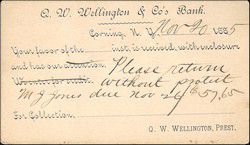 Q. W. Wellington & Co's Bank.
Corning, N. Y. Nov 20 1885
Your favor of the inst. is received, with enclosure
and has our attention. Please return
without protest
M J Jones due Nov 26 $57.65
For Collection.
Q. W. WELLINGTON, PREST.